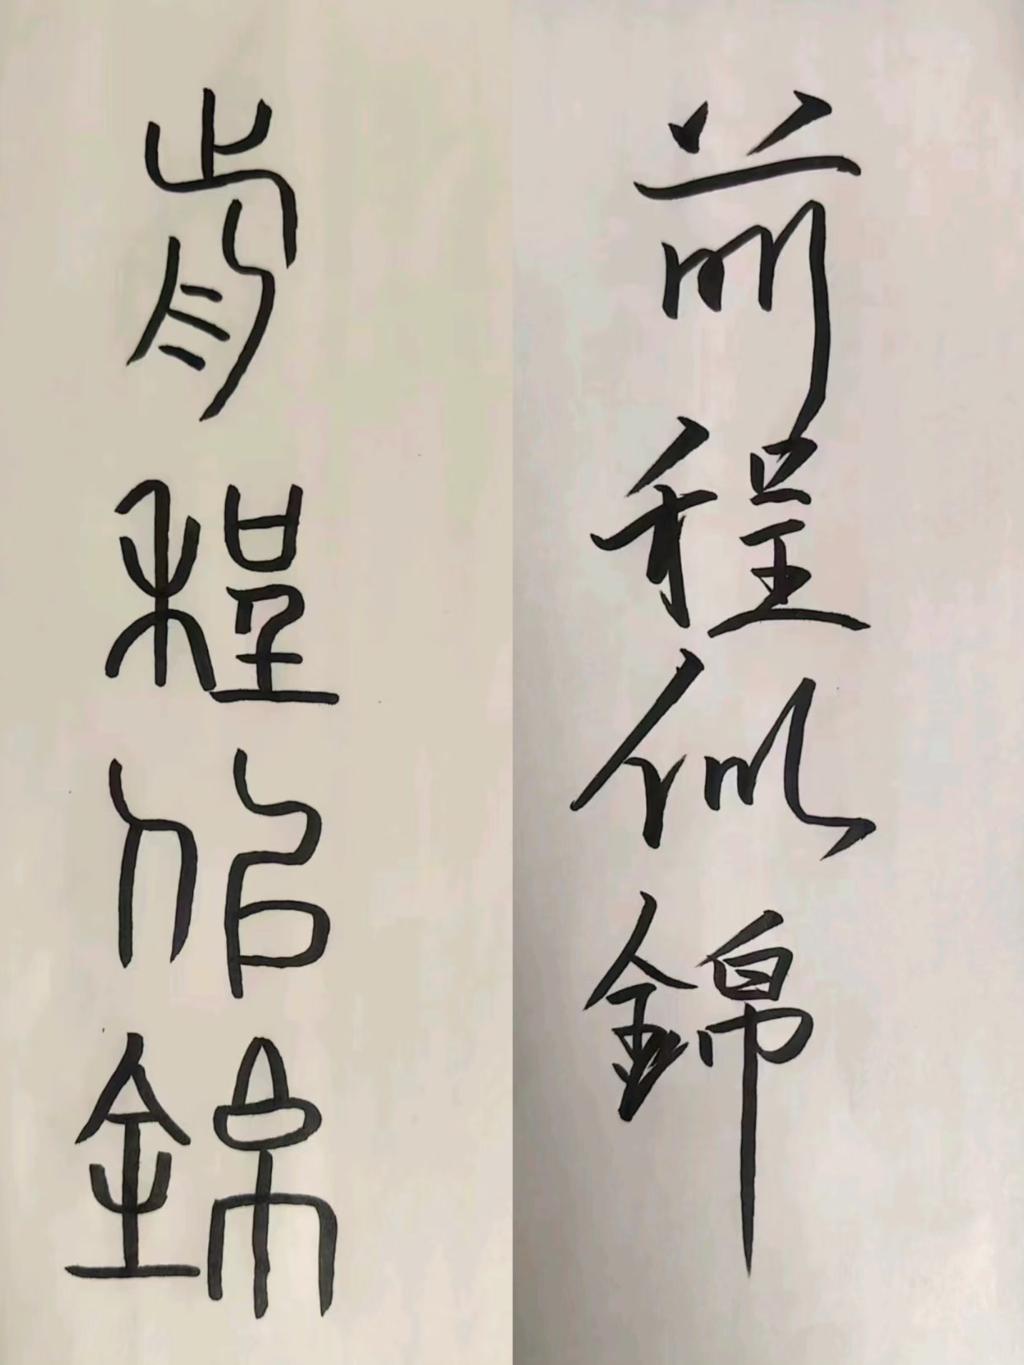 前程似錦
前程似錦